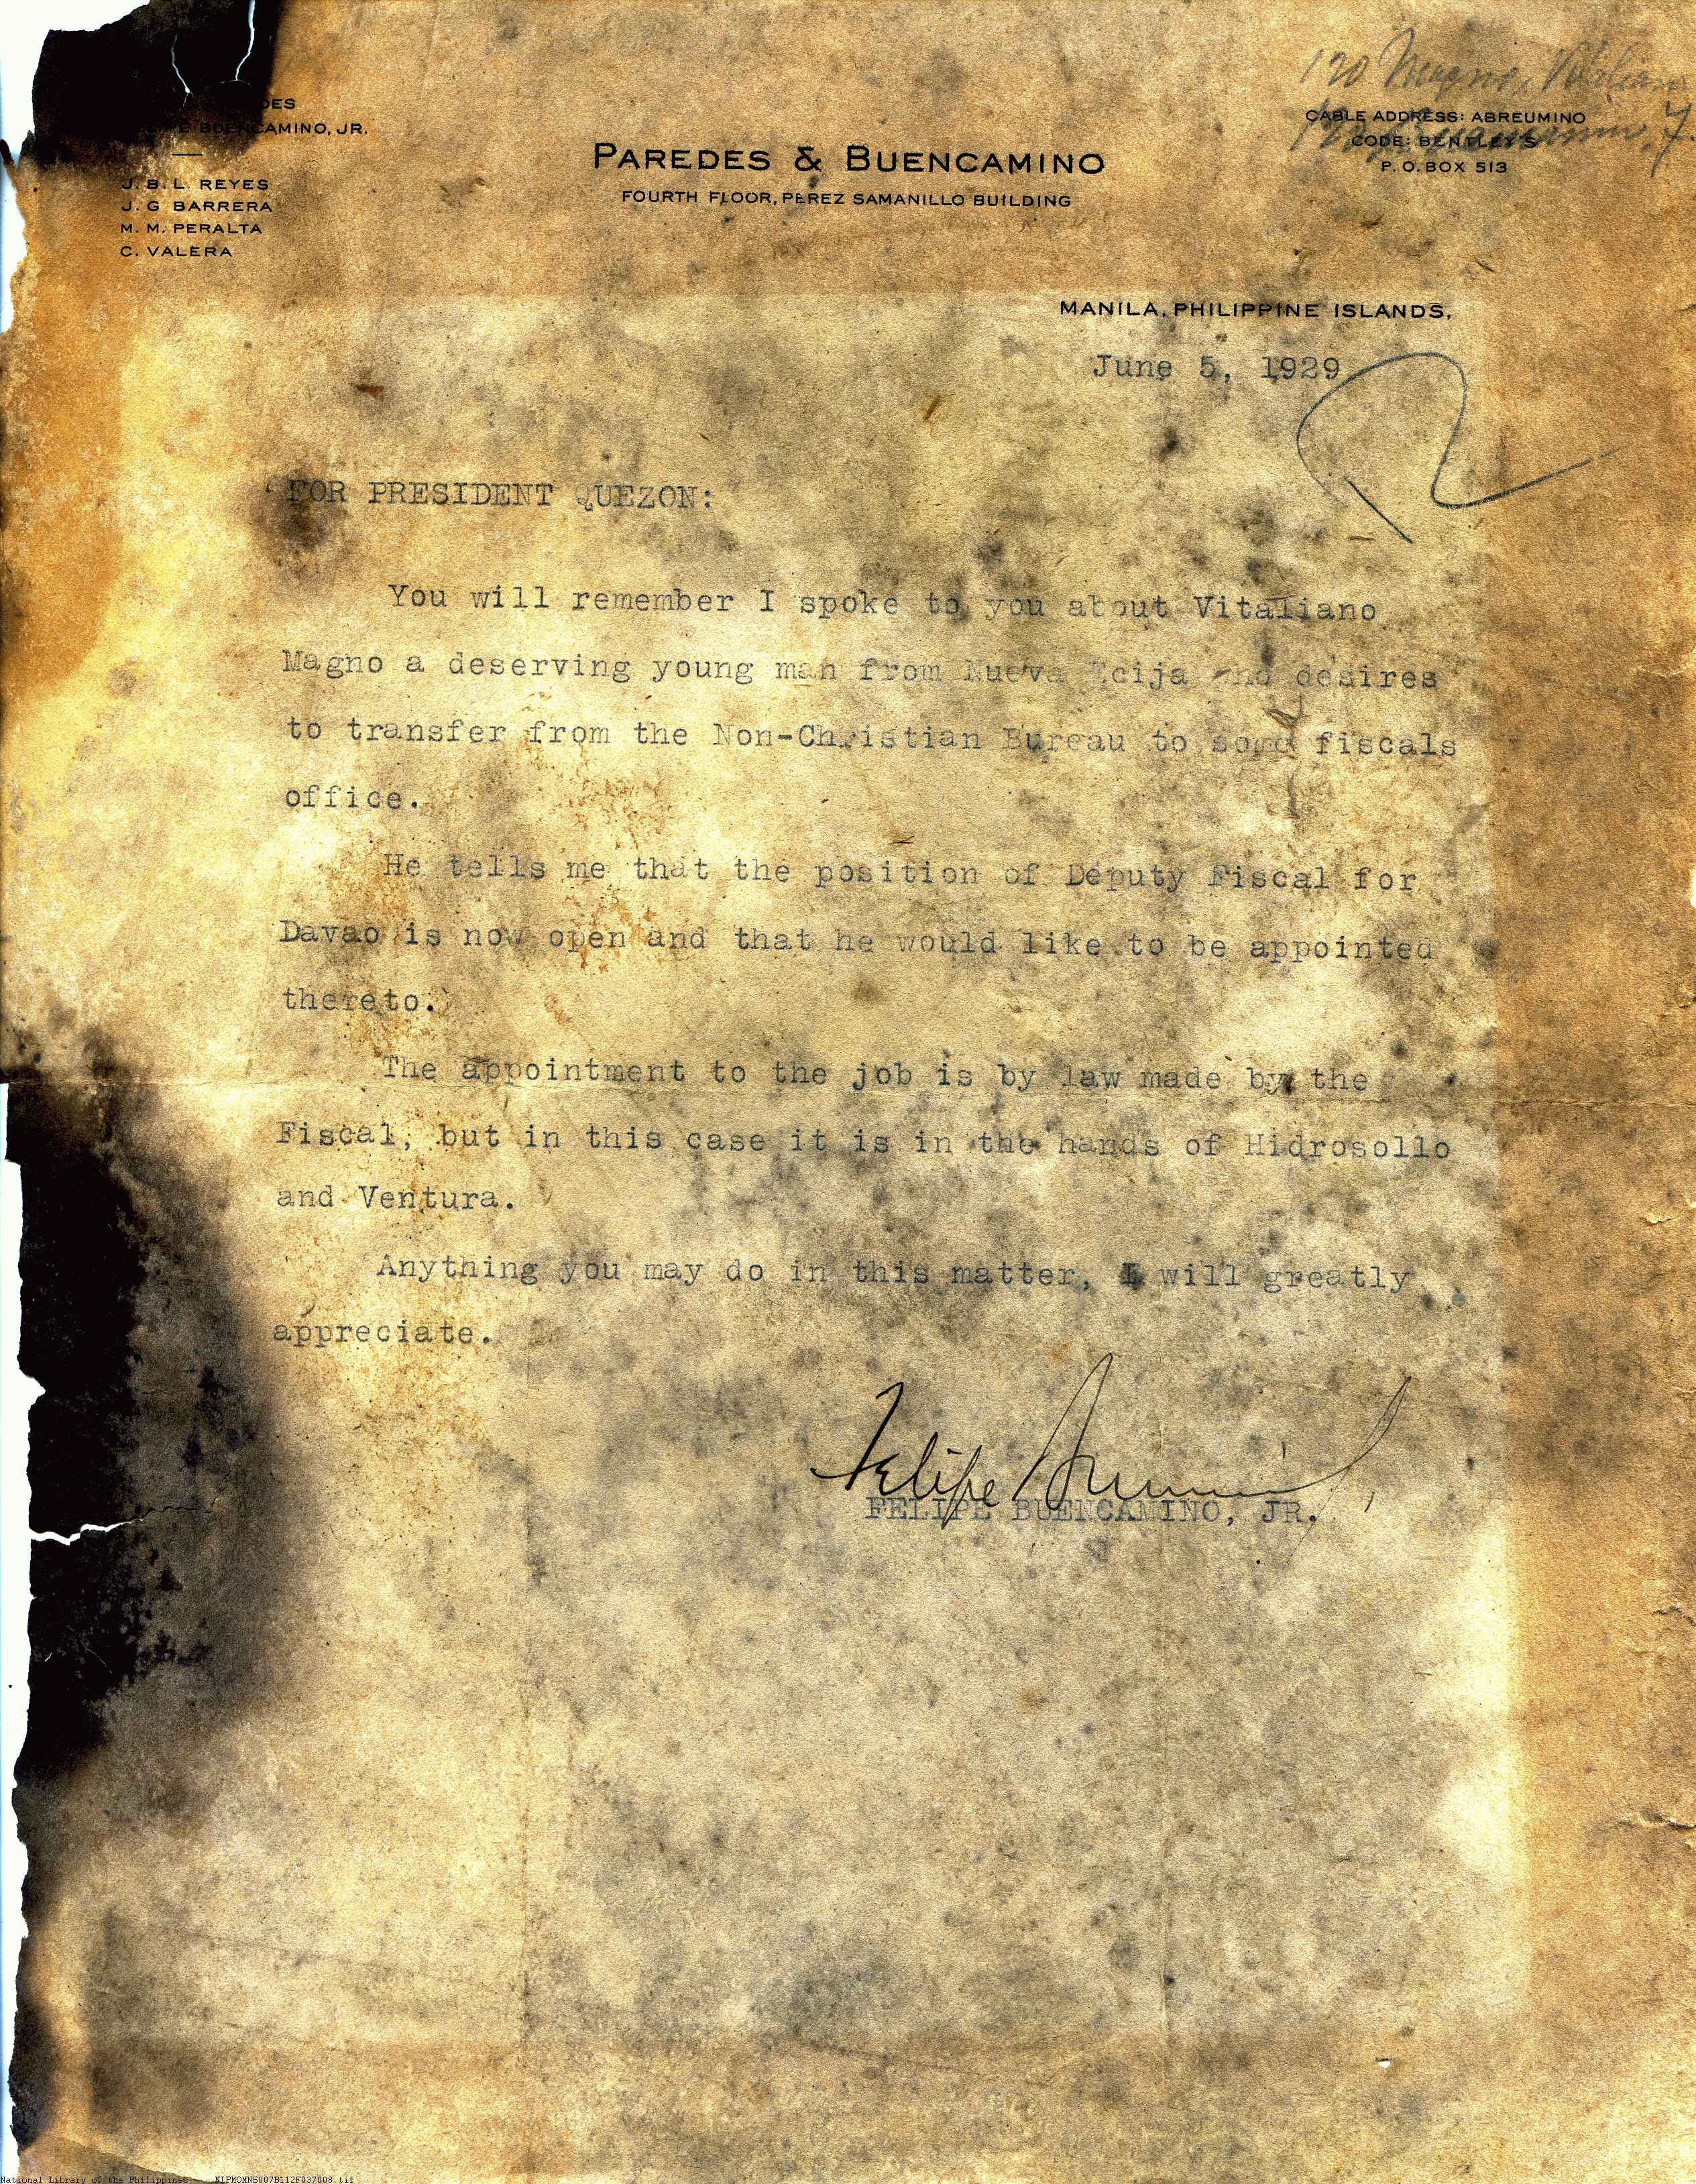 DES
FELIPE BUENCAMINO, JR.
J. B. L. REYES
J. G BARRERA
M. M. PERALTA
C. VALERA
PAREDES & BUENCAMINO
FOURTH FLOOR, PEREZ SAMANILLO BUILDING
120 Magno, Vitaliano
CABLE ADDRESS: ABREUMINO
Buencamino, F.
CODE: BENTLEY'S
P. O. BOX 513
MANILA, PHILIPPINE ISLANDS,
June 5, 1929
FOR PRESIDENT QUEZON:
You will remember I spoke to you about Vitaliano
Magno a deserving young man from Nueva Ecija who desires
to transfer from the Non-Christian Bureau to some fiscals
office.
He tells me that the position of Deputy Fiscal for
Davao is now open and that he would like to be appointed
thereto.
The appointment to the job is by law made by the
Fiscal, but in this case it is in the hands of Hidrosollo
and Ventura.
Anything you may do in this matter, I will greatly
appreciate.
Felipe Buencamino Jr.
FELIPE BUENCAMINO, JR.
National Library of the Philippines - NLPMQMNS007B112F037008.tif